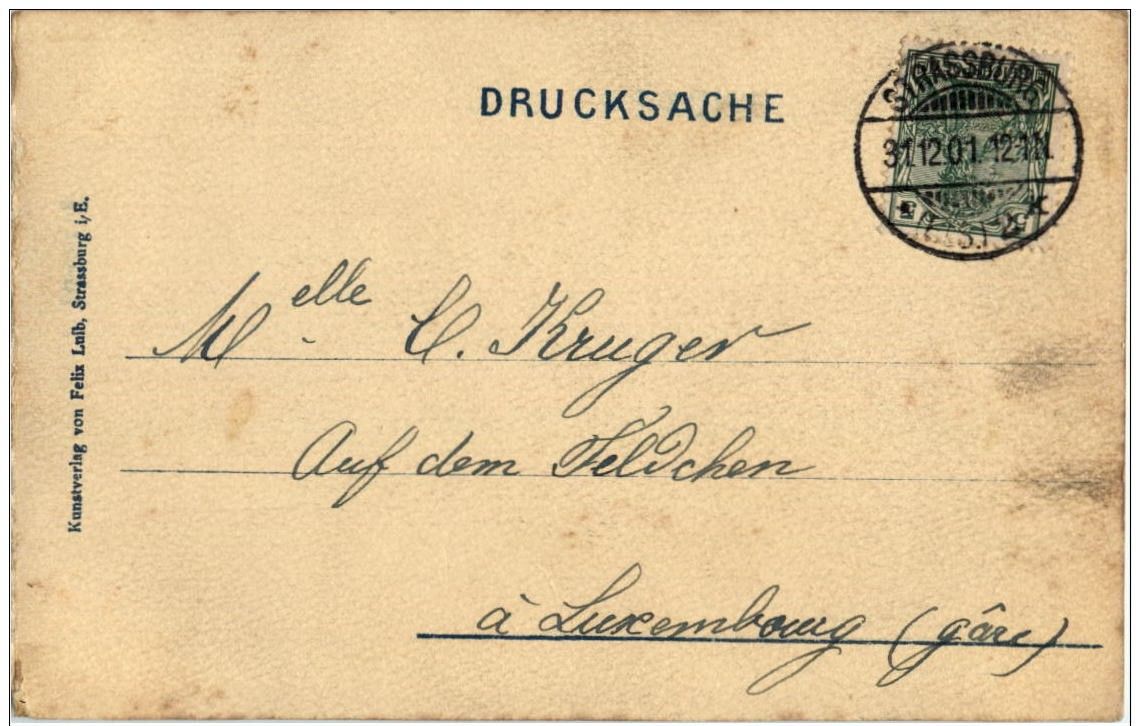 DRUCKSACHE
STRASSBURG
31.12.01. 12-1N.
Kunstverlag von Felix Luib, Strassburg i/E.
Melle C. Kruger
Auf dem Feldchen
à Luxembourg (gâre)